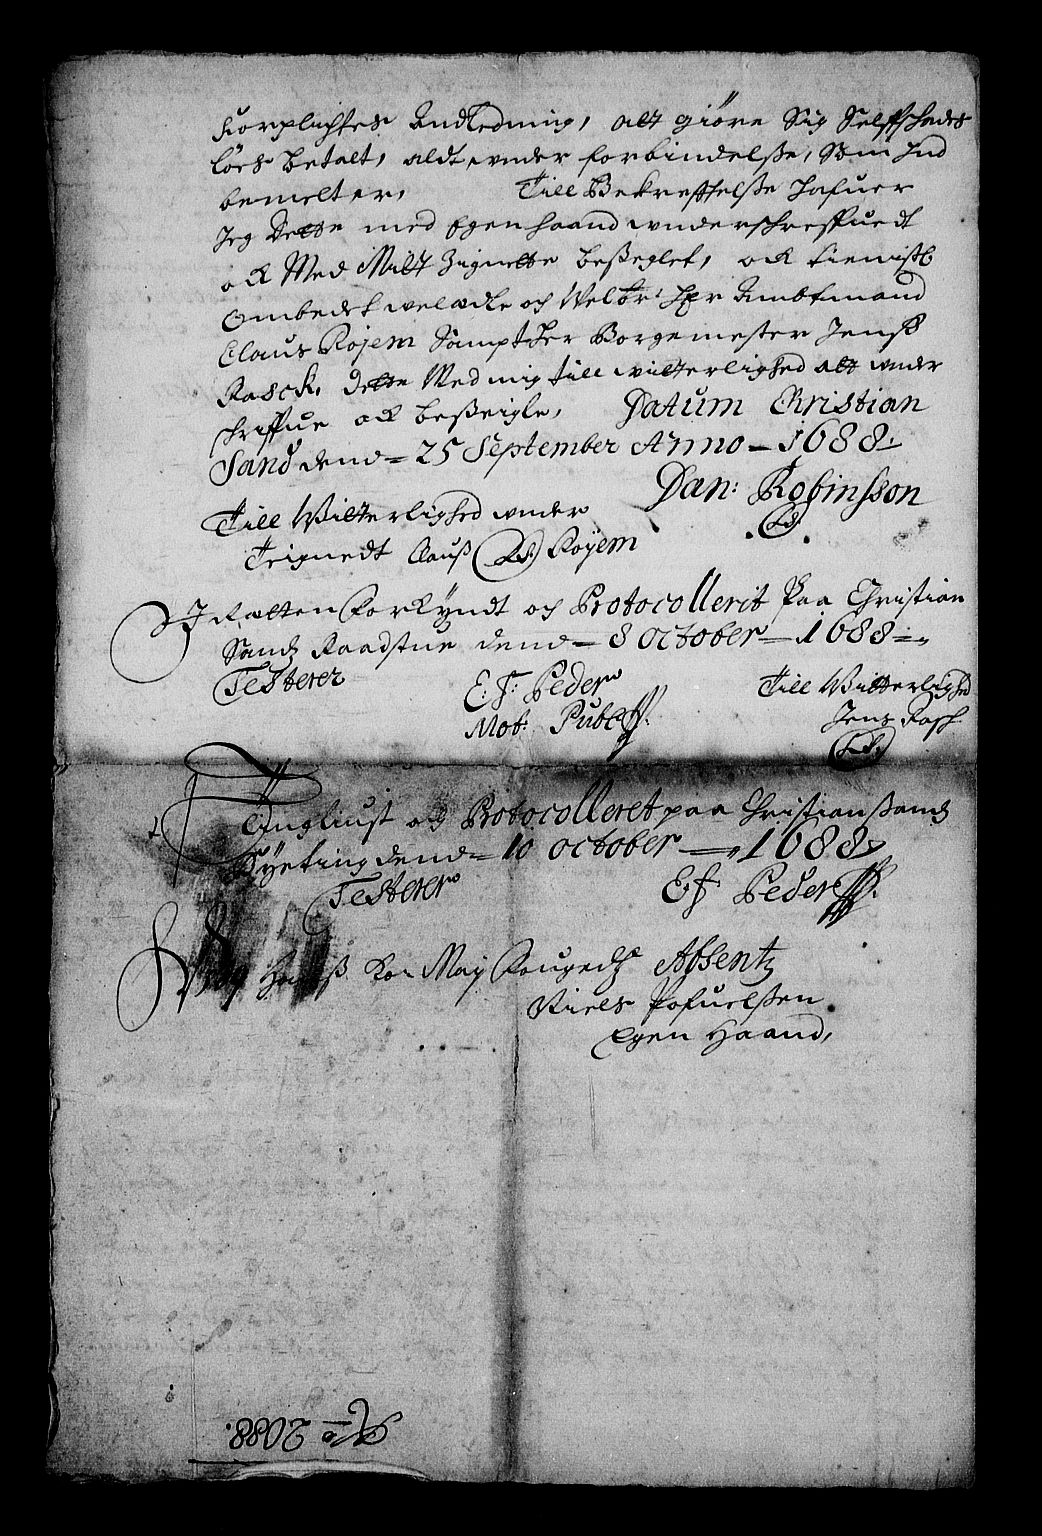 forplichtes Andledning, att giöre Sig Selffschades
löes betalt, aldt under forbindelsse, Som Ind
bemelter, Till Bekrefftelsse hafuer
Jeg Dette med Egen haand underschreffuedt
och Med Mitt Zignette besseglet, och tienistl
Ombedet welædle och Welbr: Hr Ambtmand
Claus Röyem Sampt Her Borgemester Jens
Rasch, dette Med mig till witterlighed att under
schriffue och besseigle, Datum Christian
Sand dend 25 September Anno 1688
Dan: Robinsson
LS.
Till Witterlighed under
Teignedt Clauss (LS.) Röyem
I Retten Forkyndt och Protocollerit Paa Christian
Sands Raadstue dend 8 October 1688
Testerer E: J: Peder Till Witterlighed
Mot: Publ Jens Rasch
(LS)
Tingliust och Protocolleret paa Christianssands
Byeting dend 10 October 1688
Testerer E: J: Peder
Kon May Fougeds Absentz
Niels Pofuelssen
Egen Haand,
No 2088.